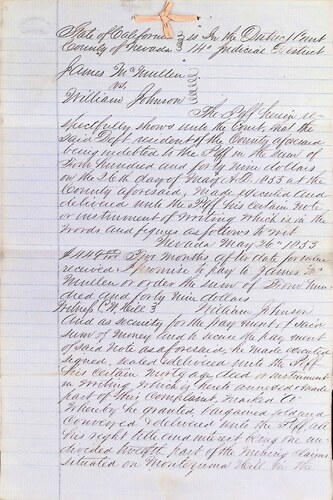 State of California } ss In the District Court
County of Nevada } 14th Judicial District
James McMullen
vs.
William Johnson
The Plff herein re-
spectfully shows unto the Court, that the
said Deft resident of the County aforesaid
being indebted to the Plff in the sum of
Four hundred and forty nine dollars
on the 26th day of May A.D. 1855 at the
County aforesaid, made executed and
delivered unto the Plff his certain Note
or instrument of writing which is in the
words and figures as follows to wit
Nevada May 26th 1855
months after date for value
received I promise to pay to James Mc
Mullen or order the sum of Four hun-
dred and forty nine dollars
William Johnson
And as security for the payment of said
sum of money and to secure the payment
of said Note as aforesaid, he made executed
signed, sealed delivered unto the Plff
his certain mortgage deed or instrument
in writing which is hereto annexed & made
part of this Complaint, marked A
Whereby he granted, bargained sold and
Conveyed & delivered unto the Plff all
his right title and interest being one un-
divided twelfth part of the mining claims
situated on Montezuma Hill in the